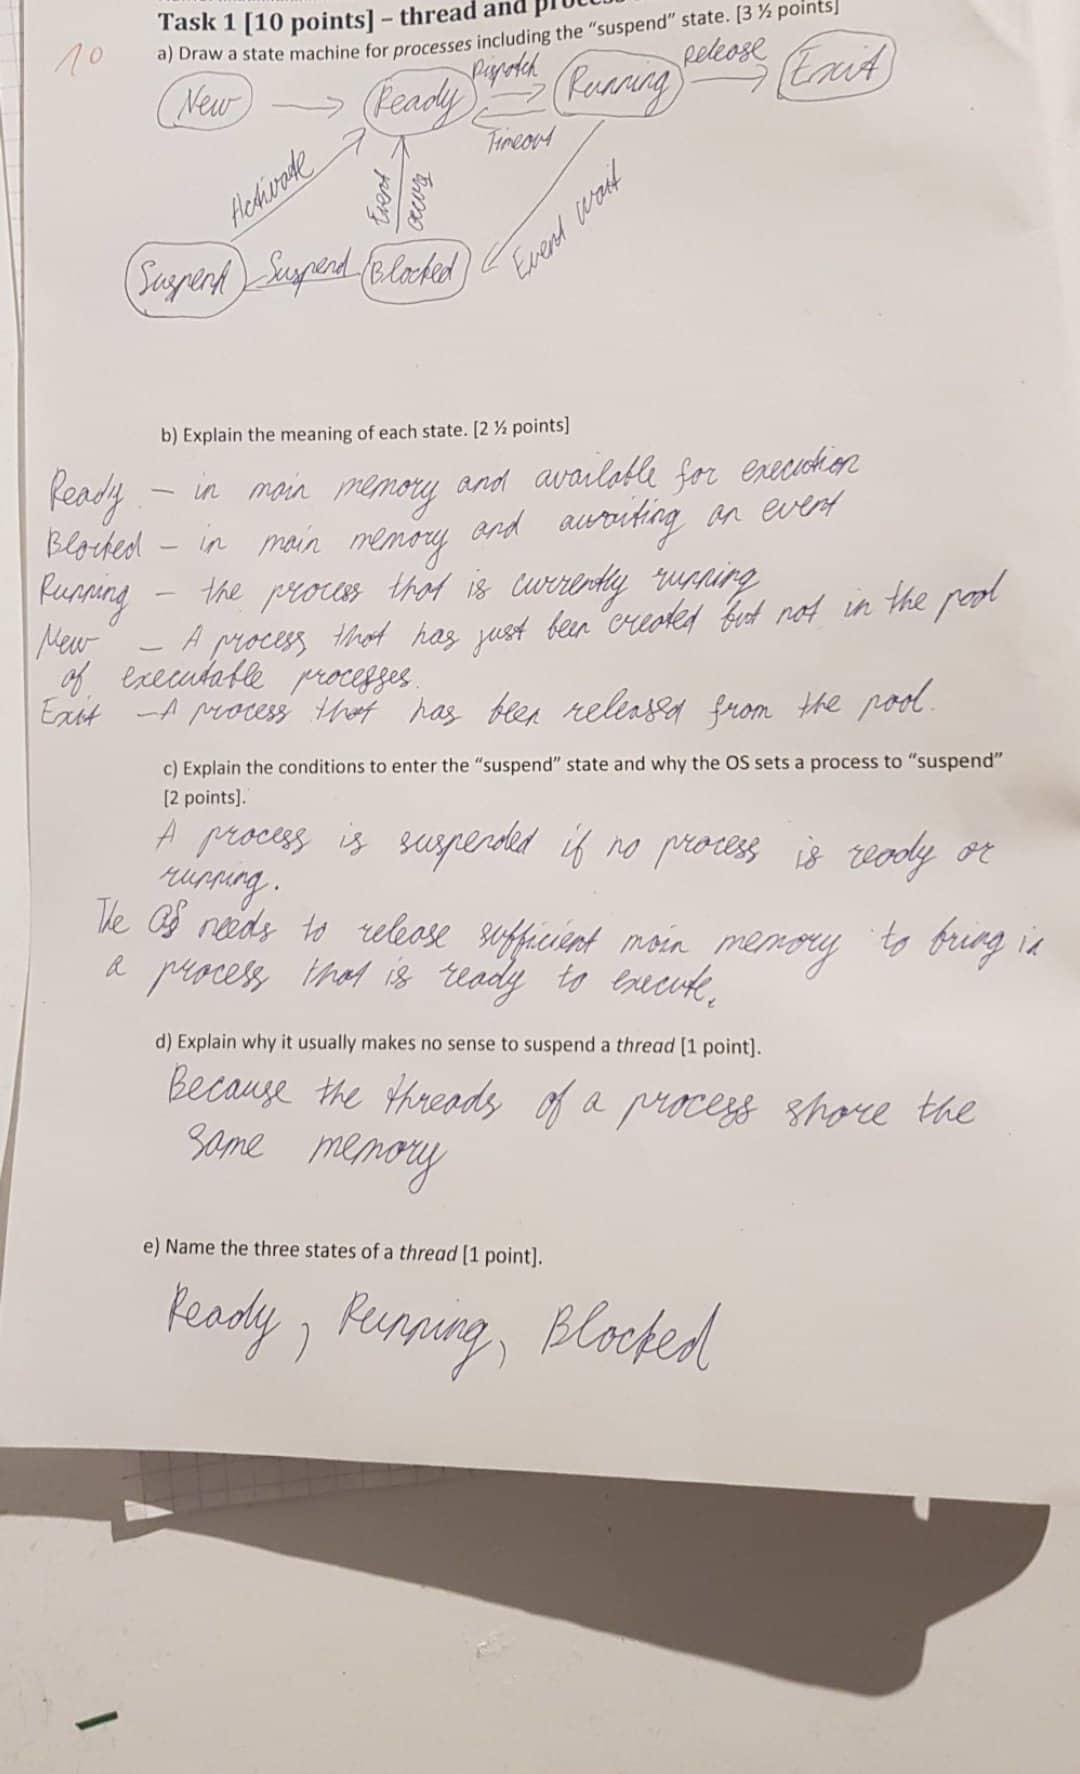 Task 1 [10 points] – thread and
10
a) Draw a state machine for processes including the "suspend" state. [3 ½ points]
New
Ready
Dispatch
Running
release
Exit
Timeout
Activate
Event
occurs
Event wait
Suspend
Suspend
Blocked
b) Explain the meaning of each state. [2 ½ points]
Ready – in main memory and available for execution
Blocked – in main memory and awaiting an event
Running – the process that is currently running
New – A process that has just been created but not in the pool
of executable processes.
Exit – A process that has been released from the pool.
c) Explain the conditions to enter the "suspend" state and why the OS sets a process to "suspend"
[2 points].
A process is suspended if no process is ready or
running.
The OS needs to release sufficient main memory to bring in
a process that is ready to execute.
d) Explain why it usually makes no sense to suspend a thread [1 point].
Because the threads of a process share the
same memory
e) Name the three states of a thread [1 point].
Ready, Running, Blocked